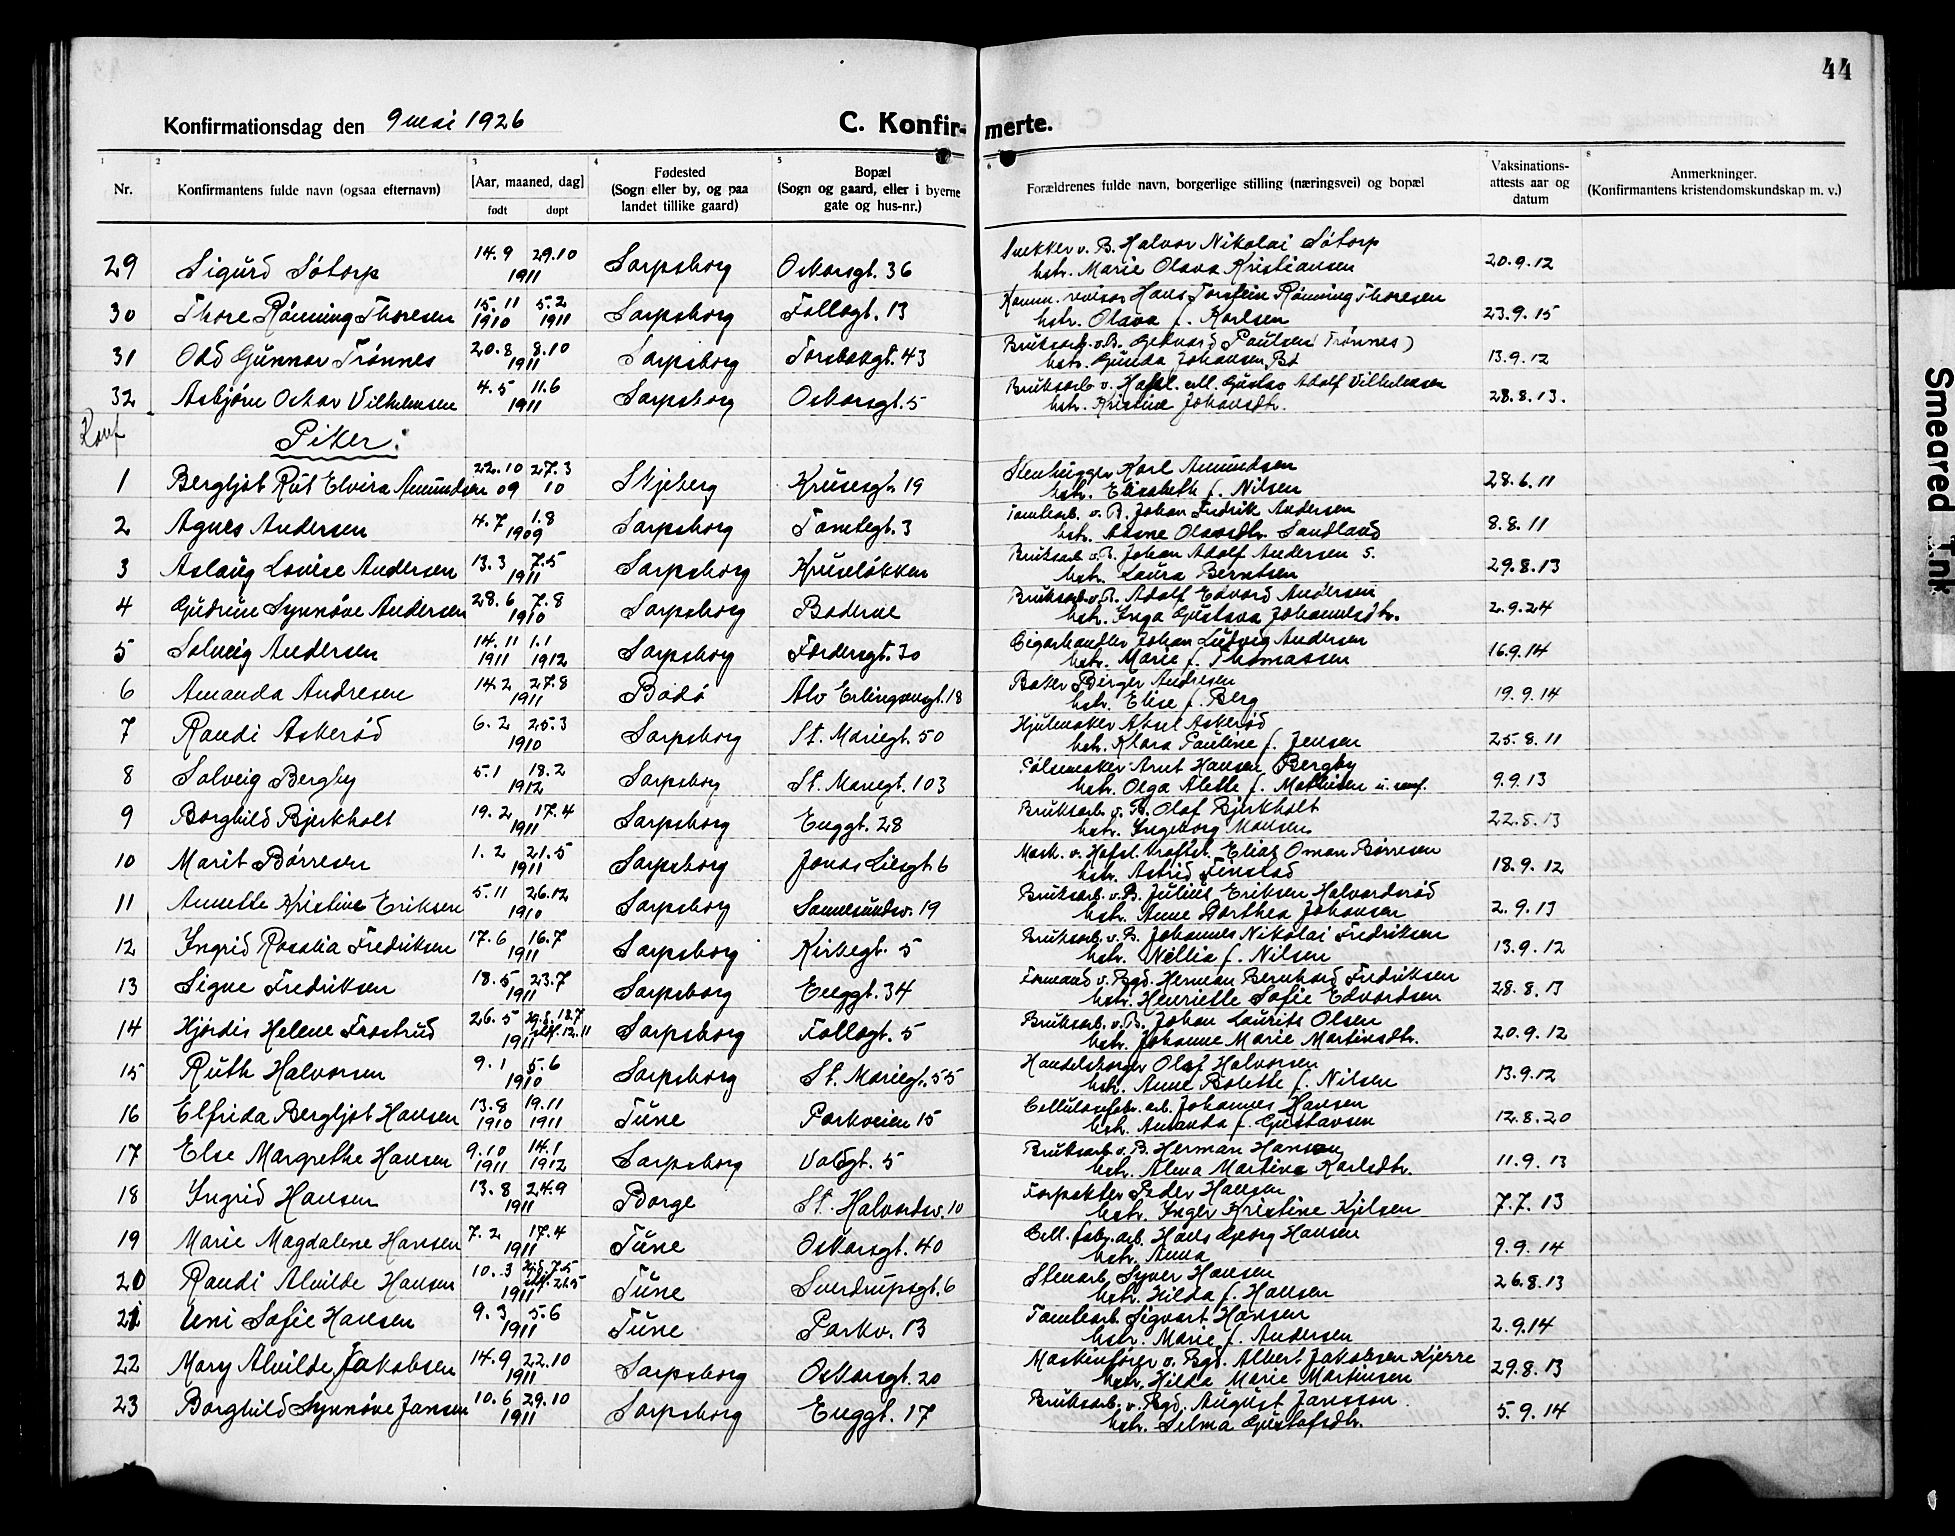 44
Konfirmationsdag den 9 mai 1926
C. Konfir- merte.
1 2 3 4 5 6 7 8
Nr.
Konfirmantens fulde navn (ogsaa efternavn)
[Aar, maaned, dag]
født døpt
Fødested
(Sogn eller by, og paa
landet tillike gaard)
Bopæl
(Sogn og gaard, eller i byerne
gate og hus-nr.)
Forældrenes fulde navn, borgerlige stilling (næringsvei) og bopæl
Vaksinations-
attests aar og
datum
Anmerkninger.
(Konfirmantens kristendomskundskap m. v.)
29 Sigurd Søtorp 14.9 29.10 1911 Sarpsborg Oskarsgt. 36 Snekker v. B. Halvor Nikolai Søtorp
hstr. Marie Olava Kristiansen 20.9.12
30 Thore Rønning Thoresen 15.11 1910 5.2 1911 Sarpsborg Follogt. 13 Komm. revisor Hans Torstein Rønning Thoresen
hstr. Olava f. Karlsen 23.9.15
31 Odd Gunnar Trønnes 20.8 8.10 1911 Sarpsborg Torsbekgt. 43 Bruksarb. v. B. Gedvard Paulsen (Trønnes)
hstr. Gunda Johansen Bø 13.9.12
32 Asbjørn Oskar Vilhelmsen 4.5 11.6 1911 Sarpsborg Oskarsgt. 5 Bruksarb. v. Hafsl. Gustav Adolf Vilhelmsen
hstr. Kristine Johansdtr. 28.8.13.
Konf
Piker:
1 Bergljot Rut Elvira Amundsen 22.10 09 27.3 10 Skjeberg Krusesgt. 19 Stenhugger Karl Amundsen
hstr. Elisabeth f. Nilsen 28.6.11
2 Agnes Andersen 4.7 1.8 1909 Sarpsborg Tomtegt. 3 Tomtearb. v. B. Johan Fredrik Andersen
hstr. Anne Olavsdtr. Sandland 8.8.11
3 Aslaug Lovise Andersen 13.3 7.5 1911 Sarpsborg Kruseløkken Bruksarb. v. B. Johan Adolf Andersen s.
hstr. Laura Berntsen 29.8.13
4 Gudrun Synnøve Andersen 28.6 7.8 1910 Sarpsborg Baderne Bruksarb. v. B. Adolf Edvard Andersen
hstr. Inga Gustava Johannesdtr. 2.9.24
5 Solveig Andersen 14.11 1911 1.1 1912 Sarpsborg Færdersgt. 30 Cigarhandler Johan Ludvig Andersen
hstr. Marie f. Thomassen 16.9.14
6 Amanda Andresen 14.2 27.8 1911 Bodø Alv Erlingsønsgt. 18 Baker Birger Andresen
hstr. Elise f. Berg 19.9.14
7 Randi Askerød 6.2 25.3 1910 Sarpsborg St. Mariegt. 50 Hjulmaker Aksel Askerød
hstr. Klara Pauline f. Jensen 25.8.11
8 Solveig Bergby 5.1 18.2 1912 Sarpsborg St. Mariegt. 103 Pølsemaker Arnt Hansen Bergby
hstr. Olga Alette f. Mathisen 9.9.13
9 Borghild Bjerkholt 19.2 17.4 1911 Sarpsborg Enggt. 28 Bruksarb. v. B. Olaf Bjerkholt
hstr. Ingeborg Monsen 22.8.13
10 Marit Børresen 1.2 21.5 1911 Sarpsborg Jonas Liesgt. 6 Mask. v. Hafsl. kraftst. Elias Oman Børresen
hstr. Astrid Finstad 18.9.12
11 Annette Kristine Eriksen 5.11 26.12 1910 Sarpsborg Sannesundsv. 19 Bruksarb. v. B. Julius Eriksen Halvardsrød
hstr. Anne Dorthea Johansen 2.9.13
12 Ingrid Rosalia Fredriksen 17.6 16.7 1911 Sarpsborg Kirkegt. 5 Bruksarb. v. B. Johannes Nikolai Fredriksen
hstr. Nellia f. Nilsen 13.9.12
13 Signe Fredriksen 18.5 23.7 1911 Sarpsborg Enggt. 34 Formand v. Bgd. Herman Bernhard Fredriksen
hstr. Henriette Sofie Edvardsen 28.8.13
14 Hjørdis Helene Frostrud 26.5 hjd. 18.7 stf. 12.11 1911 Sarpsborg Follogt. 5 Bruksarb. v. B. Johan Laurits Olsen
hstr. Johanne Marie Martinsdtr. 20.9.12
15 Ruth Halvorsen 9.1 5.6 1910 Sarpsborg St. Mariegt. 55 Handelsborger Olaf Halvorsen
hstr. Anne Bolette f. Nilsen 13.9.12
16 Elfrida Bergljot Hansen 13.8 1910 19.11 1911 Tune Parkveien 15 Cellulosefabr. arb. Johannes Hansen
hstr. Amanda f. Gustavsen 12.8.20
17 Else Margrethe Hansen 9.10 1911 14.1 1912 Sarpsborg Voldgt. 5 Bruksarb. v. B. Herman Hansen
hstr. Alma Martine Karlsdtr. 11.9.13
18 Ingrid Hansen 13.8 24.9 1911 Borge St. Halvardsv. 10 Forpakter Peder Hansen
hstr. Inger Kristine Kjelsen 7.7.13
19 Marie Magdalene Hansen 7.2 17.4 1911 Tune Oskarsgt. 40 Cell. fabr. arb. Hans Georg Hansen
hstr. Anna 9.9.14
20 Randi Alvilde Hansen 10.3 hjd. 7.5 stf. 21.5 1911 Tune Sverdrupsgt. 6 Stenarb. Syver Hansen
hstr. Hilda f. Hansen 26.8.13
21 Uni Sofie Hansen 9.3 5.6 1911 Tune Parkv. 13 Tomtearb. Sigvart Hansen
hstr. Marie f. Andersen 2.9.14
22 Mary Alvilde Jakobsen 14.9 22.10 1911 Sarpsborg Oskarsgt. 20 Maskinfører v. Bgd. Albert Jakobsen Kjerre
hstr. Hilda Marie Martinsen 29.8.13
23 Borghild Synnøve Jansen 10.6 29.10 1911 Sarpsborg Enggt. 17 Bruksarb. v. Bgd. August Jansson
hstr. Selma Gustafsdtr. 5.9.14
Smeared Ink.